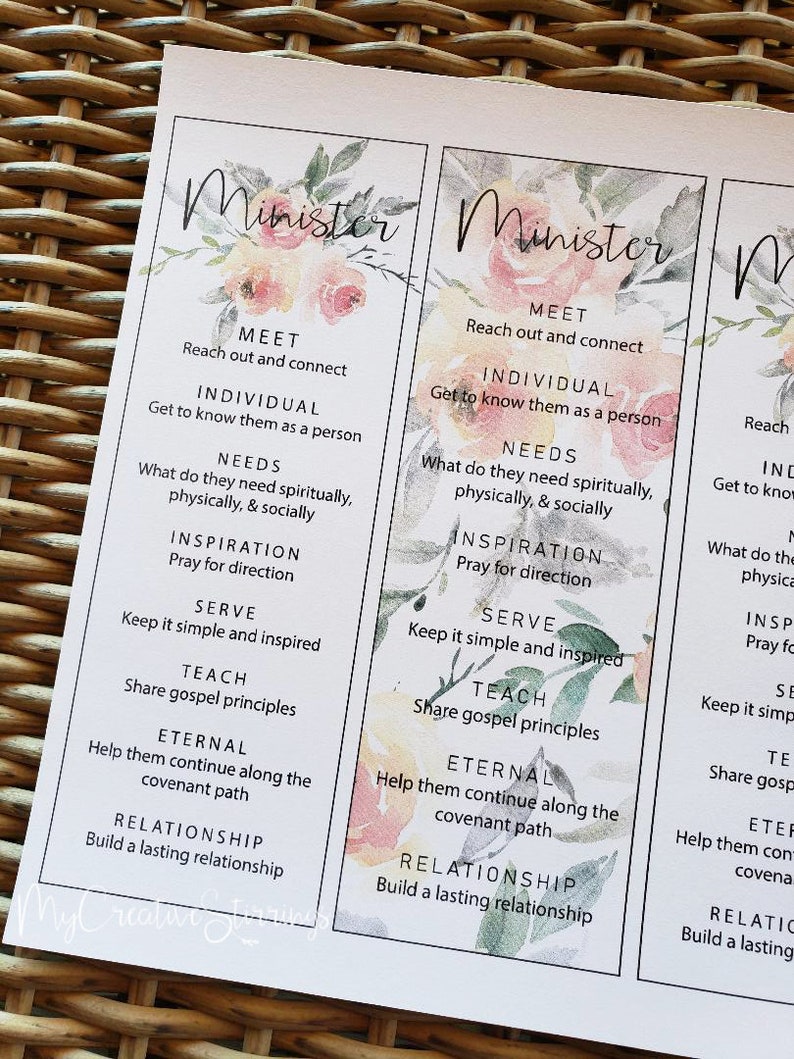 Minister
MEET
Reach out and connect
INDIVIDUAL
Get to know them as a person
NEEDS
What do they need spiritually,
physically, & socially
INSPIRATION
Pray for direction
SERVE
Keep it simple and inspired
TEACH
Share gospel principles
ETERNAL
Help them continue along the
covenant path
RELATIONSHIP
Build a lasting relationship
Minister
MEET
Reach out and connect
INDIVIDUAL
Get to know them as a person
NEEDS
What do they need spiritually,
physically, & socially
INSPIRATION
Pray for direction
SERVE
Keep it simple and inspired
TEACH
Share gospel principles
ETERNAL
Help them continue along the
covenant path
RELATIONSHIP
Build a lasting relationship
M
Reach
IND
Get to know
N
What do the
physica
INSP
Pray fo
SE
Keep it simp
TE
Share gosp
ETER
Help them con
covena
RELATIO
Build a lasting
MyCreativeStirrings